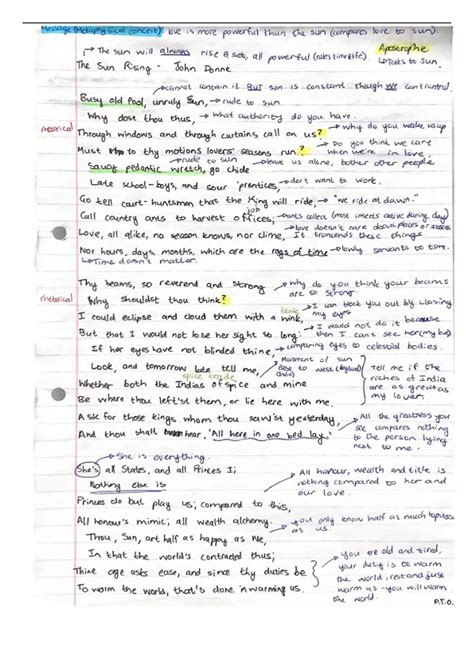 Message (Metaphysical conceit) love is more powerful than the sun (compares love to sun).
The sun will always rise & set, all powerful (rules time/life)
Apostrophe
↳ Talks to sun.
The Sun Rising - John Donne
cannot contain it But sun is constant though we can't control.
Busy old fool, unruly Sun, → rude to sun
Why dost thou thus, → what authority do you have.
rhetorical
Through windows and through curtains call on us? → why do you wake us up
Must to thy motions lovers' seasons run? → Do you think we care when we're in love,
→ rude to sun
Saucy pedantic wretch, go chide → leave us alone, bother other people
Late school-boys, and sour 'prentices, → don't want to work.
Go tell court-huntsmen that the King will ride, → "we ride at dawn."
job
Call country ants to harvest offices; → ants collect (most insects active during day)
Love, all alike, no season knows, nor clime, → love doesn't care above places or seasons It trancends these things.
Nor hours, days, months, which are the rags of time → lowly servants to time.
↳ Time doesn't matter.
Thy beams, so reverend and strong → why do you think your beams are so strong?
rhetorical
Why shouldst thou think?
I could eclipse and cloud them with a wink, → I can block you out by closing my eyes
blink
But that I would not lose her sight so long: → I would not do it because then I can't see her (my bae).
If her eyes have not blinded thine, → comparing eyes to celestial bodies.
Look, and tomorrow late tell me, → Movement of sun east to west
spice trade
Whether both the Indias of spice and mine
Tell me if the riches of India are as great as my lover.
Be where thou left'st them, or lie here with me.
Ask for those kings whom thou saw'st yesterday,
And thou shall hear, 'All here in one bed lay.'
All the greatness you see compares nothing to the person lying next to me.
→ She is everything.
She's all States, and all Princes I;
Nothing else is
All honour, wealth and title is nothing compared to her and our love.
Princes do but play us; compared to this,
All honour's mimic; all wealth alchemy.
Thou, Sun, art half as happy as we,
→ you only know half as much happiness as us.
In that the world's contracted thus;
Thine age asks ease, and since thy duties be
To warm the world, that's done in warming us.
you are old and tired, your duty is to warm the world, rest and just warm us - you will warm the world.
P.T.O.